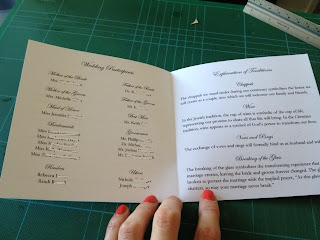 Wedding Participants
Mother of the Bride
Mrs.
Mother of the Groom
Mrs. Michelle
Maid of Honor
Miss Jennifer
Bridesmaids
Miss
Miss
Miss K
Miss
Mrs.
Readers
Rebecca
Randi B
Father of the Bride
Dr. R.
Father of the Groom
Mr. L.
Best Man
Mr. Zach
Groomsmen
Mr. Philip
Dr. Michael
Mr. Joshua
Mr. Da
Mr. Ja
Ushers
Nicholas
Joseph
Explanation of Traditions
Chuppah
The chuppah we stand under during our ceremony symbolizes the home we
will create as a couple, into which we will welcome our family and friends.
Wine
In the Jewish tradition, the cup of wine is symbolic of the cup of life,
representing our promise to share all that life will bring. In the Christian
tradition, wine appears as a symbol of God's power to transform our lives.
Vows and Rings
The exchange of vows and rings will formally bind us as husband and wife
Breaking of the Glass
The breaking of the glass symbolizes the transforming experience that
marriage creates, leaving the bride and groom forever changed. The glass
broken to protect the marriage with the implied prayer, "As this glass
shatters, so may your marriage never break."